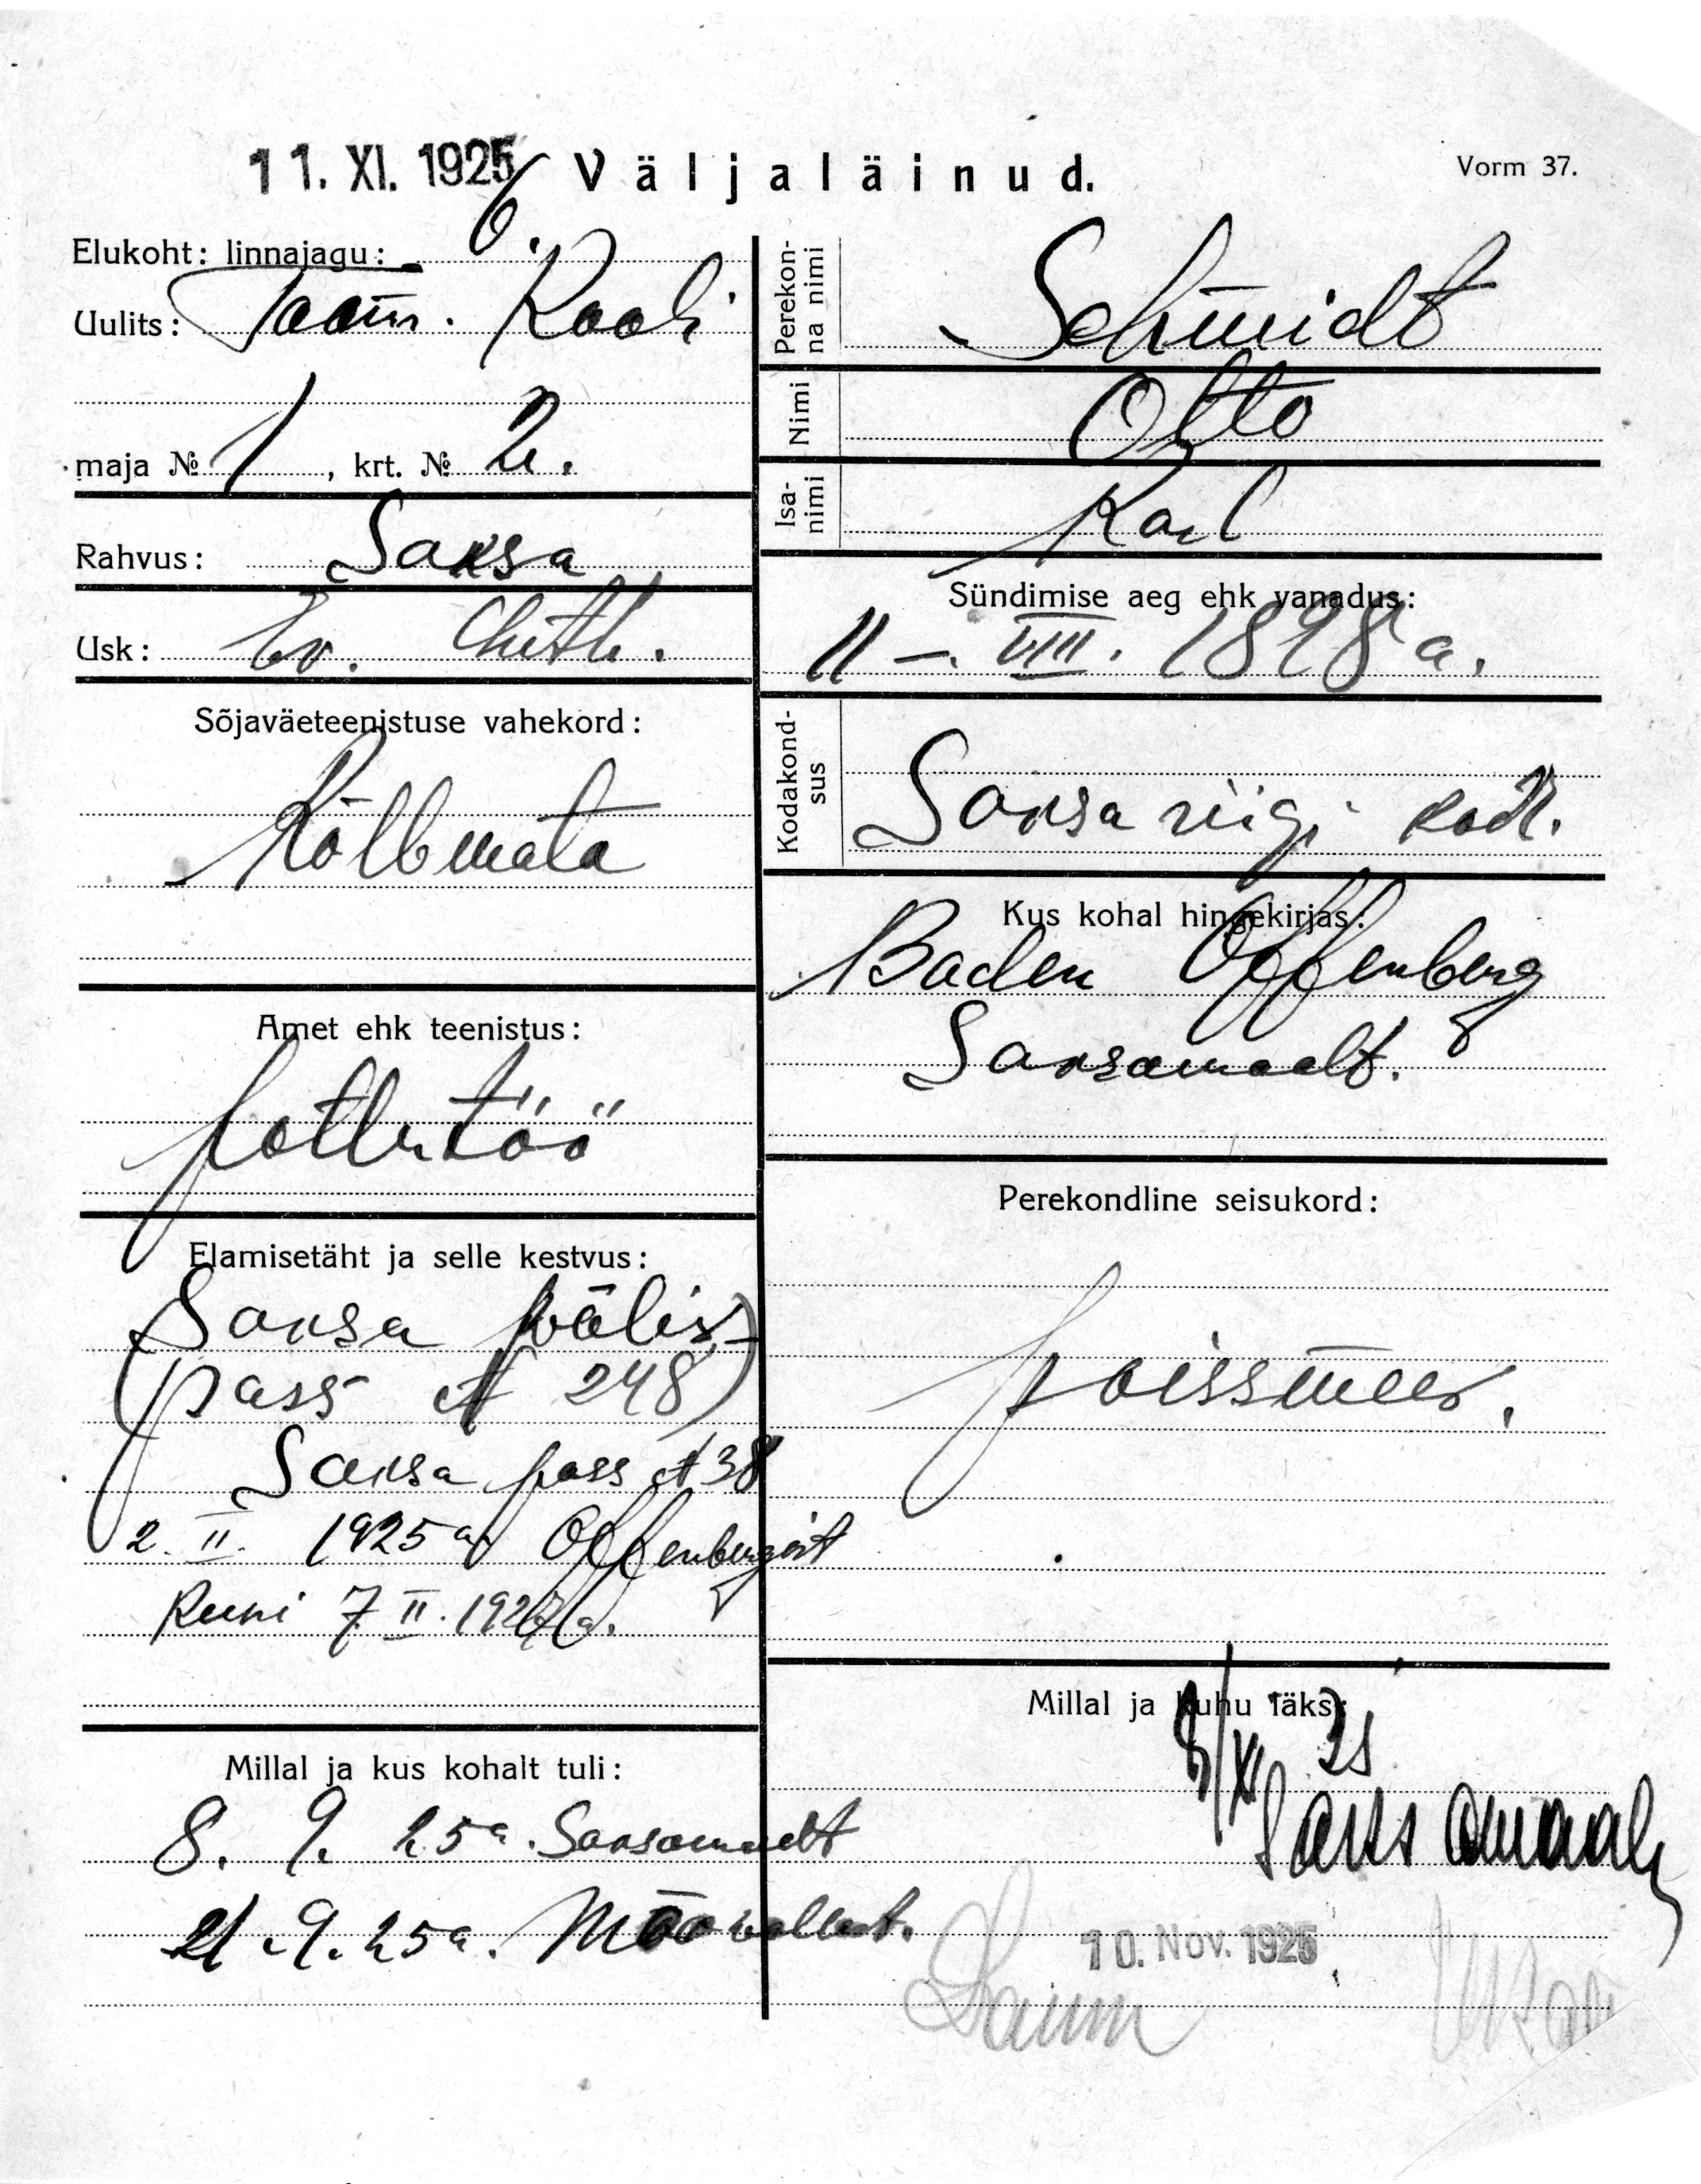 11. XI. 1925
Väljaläinud.
Vorm 37.
Elukoht: linnajagu: 6.
Uulits: Toom. Kooli
maja № 1, krt. № 2.
Rahvus: Saksa
Usk: Ev. Luth.
Sõjaväeteenistuse vahekord:
Kõlbmata
Amet ehk teenistus:
põllutöö
Elamisetäht ja selle kestvus:
(Saksa välis-
pass № 248)
Saksa pass № 38
2. II. 1925 a. Offenbergist
kuni 7. II. 1927 a.
Millal ja kus kohalt tuli:
8. 9. 25 a. Saksamaalt
21. 9. 25 a.
Perekonna nimi
Schmidt
Nimi
Otto
Isanimi
Karl
Sündimise aeg ehk vanadus:
11 –. VIII. 1898 a.
Kodakondsus
Saksa riigi kodk.
Kus kohal hingekirjas:
Baden Offenberg
Saksamaalt.
Perekondline seisukord:
poissmees.
Millal ja kuhu läks:
8/XI 25
Saksamaale
10. Nov. 1925